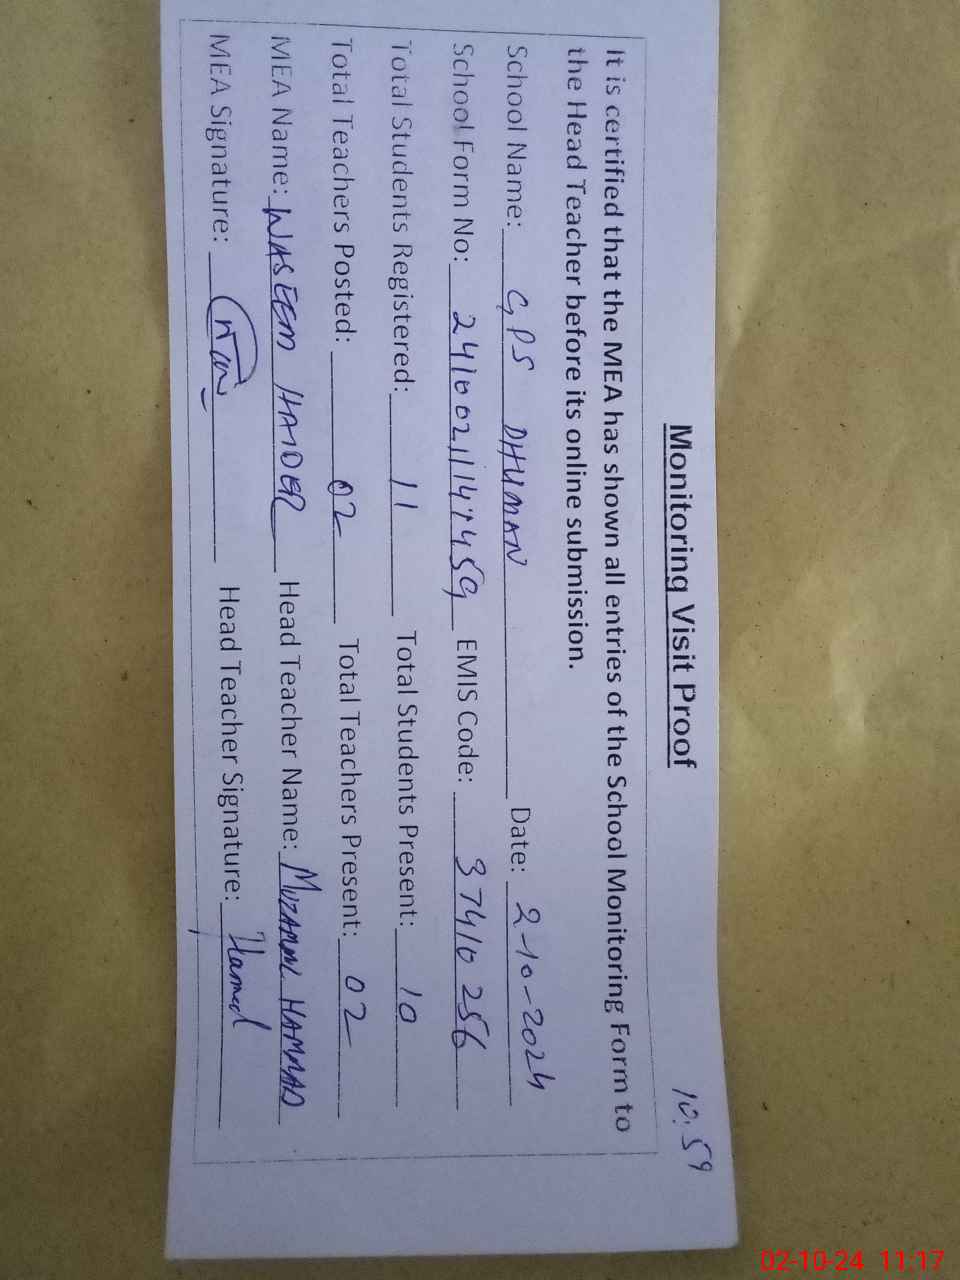 10:59
Monitoring Visit Proof
It is certified that the MEA has shown all entries of the School Monitoring Form to
the Head Teacher before its online submission.
School Name: GPS DHUMAN Date: 2-10-2024
School Form No: EMIS Code: 37410256
Total Students Registered: 11 Total Students Present: 10
Total Teachers Posted: 02 Total Teachers Present: 02
MEA Name: WASEEM HAIDER Head Teacher Name: MUZAMMIL HAMMAD
MEA Signature: Head Teacher Signature: Hamad
02-10-24 11:17